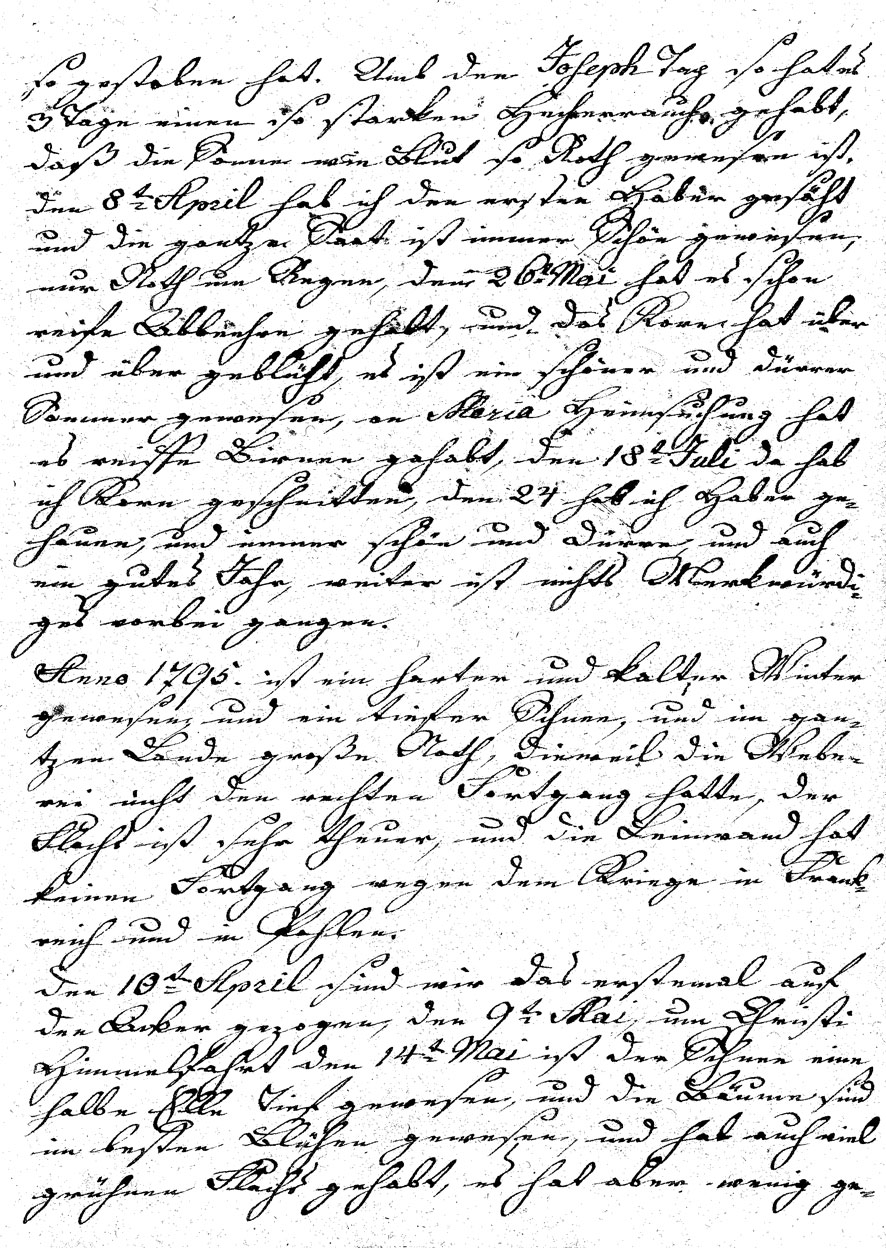 so gestoben hat. Umb den Joseph Tag so hat es
3 Tage einen so starken Heherrauch, gehabt,
daß die Sonne wie Blut so Roth gewesen ist.
den 8t April hab ich den ersten Haber gesäht
und die gantze Saat ist immer Schön gewesen,
nur Noth um Regen, den 26t Mai hat es schon
reife Ebbeehre gehabt, und das Korn hat über
und über geblüht, es ist ein schöner und dürrer
Sommer gewesen, an Maria Heimsuchung hat
es reiffe Birnen gehabt, den 18t Juli da hab
ich Korn geschnitten, den 24 hab ich Haber ge-
hauen, und immer schön und dürre und auch
ein gutes Jahr, weiter ist nichts Merkwürdi-
ges vorbei gangen.
Anno 1795. ist ein harter und kalter Winter
gewesen, und ein tiefer Schnee, und im gan-
tzen Lande große Noth, dieweil die Webe-
rei nicht den rechten Fortgang hatte, der
Flachs ist sehr theuer, und die Leinwand hat
keinen Fortgang wegen dem Kriege in Frank-
reich und in Pohlen.
den 10t April sind wir das erstemal auf
den Acker gezogen, den 9t Mai, um Christi
Himmelfahrt den 14t Mai ist der Schnee eine
halbe Elle Tief gewesen, und die Bäume sind
im besten Blühen gewesen, und hat auch viel
grühnen Flachs gehabt, es hat aber wenig ge-